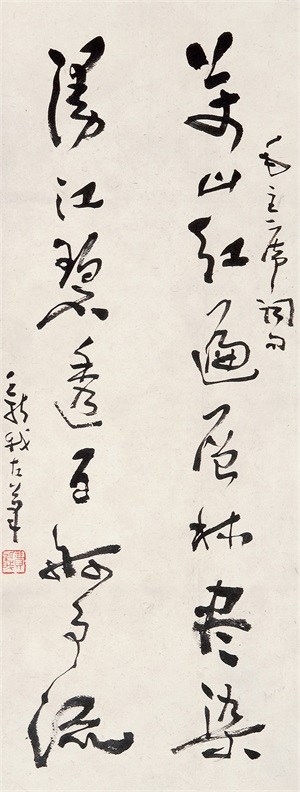 毛主席词句
万山红遍层林尽染
漫江碧透百舸争流
新我左笔